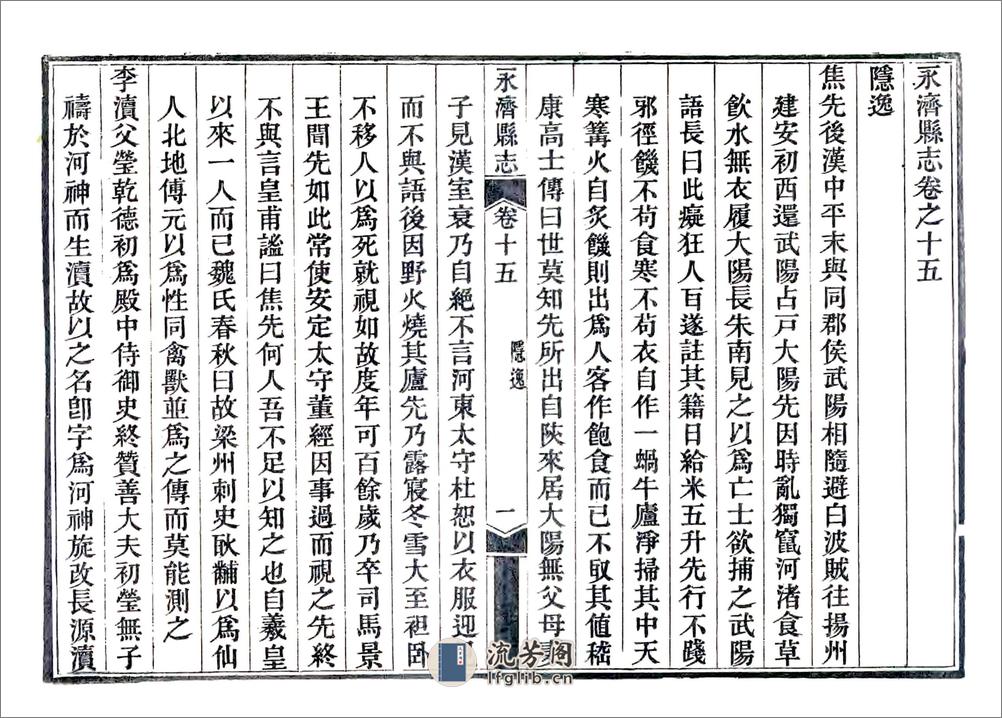 永濟縣志卷之十五
隱逸
焦先後漢中平末與同郡侯武陽相隨避白波賊往揚州
建安初西還武陽占戸大陽先因時亂獨竄河渚食草
飲水無衣履大陽長朱南見之以爲亡士欲捕之武陽
語長曰此癡狂人百遂註其籍日給米五升先行不踐
邪徑饑不苟食寒不苟衣自作一蝸牛廬淨掃其中天
寒篝火自炙饑則出爲人客作飽食而已不取其値嵇
康高士傳曰世莫知先所出自陜來居大陽無父母
永濟縣志 卷十五 隱逸 一
子見漢室衰乃自絶不言河東太守杜恕以衣服迎
而不與語後因野火燒其廬先乃露寢冬雪大至袒卧
不移人以爲死就視如故度年可百餘歲乃卒司馬景
王聞先如此常使安定太守董經因事過而視之先終
不與言皇甫謐曰焦先何人吾不足以知之也自羲皇
以來一人而已魏氏春秋曰故梁州刺史耿黼以爲仙
人北地傅元以爲性同禽獸並爲之傳而莫能測之
李瀆父瑩乾德初爲殿中侍御史終贊善大夫初瑩無子
禱於河神而生瀆故以之名卽字爲河神旋改長源瀆
流芳阁
lfglib.cn